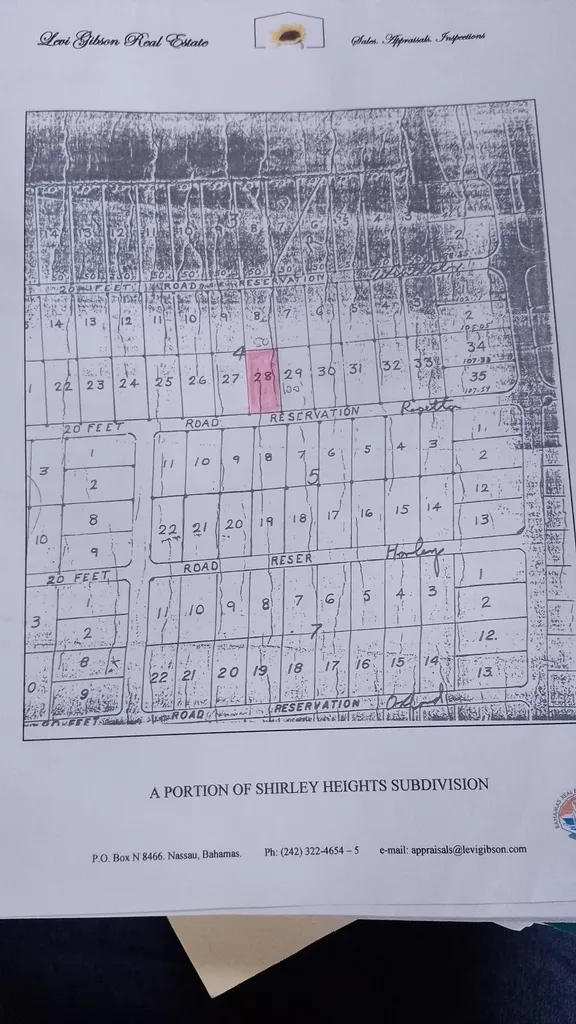 Levi Gibson Real Estate
Sales. Appraisals. Inspections
14 13 12 11 10 9 8 7 6 5 4 3
2
50' 50' 50' 50' 50' 50' 50' 50'
20 FEET ROAD RESERVATION
14 13 12 11 10 9 8 7 6 5 4 3
2
105.05
4
34
107.33
22 23 24 25 26 27 28 29 30 31 32 33
100
35
107.59
20 FEET ROAD RESERVATION Rosetta
3 1
2
11 10 9 8 7 6 5 4 3
1
2
5
10 8
9
22 21 20 19 18 17 16 15 14
12
13
20 FEET ROAD RESER Hawley
3 1
2
11 10 9 8 7 6 5 4 3
1
2
7
8
9
22 21 20 19 18 17 16 15 14
12.
13.
FEET ROAD RESERVATION
A PORTION OF SHIRLEY HEIGHTS SUBDIVISION
P.O. Box N 8466. Nassau, Bahamas. Ph: (242) 322-4654 – 5 e-mail: appraisals@levigibson.com
BAHAMAS REAL